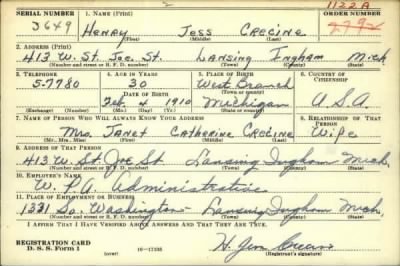 2
1122A
SERIAL NUMBER 1. NAME (Print) ORDER NUMBER
3649 Henry Jess Crecine
(First) (Middle) (Last)
2. ADDRESS (Print)
413 W. St. Joe. St. Lansing Ingham Mich
(Number and street or R. F. D. number) (Town) (County) (State)
3. TELEPHONE 4. AGE IN YEARS 5. PLACE OF BIRTH 6. COUNTRY OF CITIZENSHIP
5-7780 30 West Branch
DATE OF BIRTH (Town or county)
Feb. 4 1910 Michigan U.S.A.
(Exchange) (Number) (Mo.) (Day) (Yr.) (State or country)
7. NAME OF PERSON WHO WILL ALWAYS KNOW YOUR ADDRESS 8. RELATIONSHIP OF THAT PERSON
Mrs. Janet Catherine Crecine Wife
(Mr., Mrs., Miss) (First) (Middle) (Last)
9. ADDRESS OF THAT PERSON
413 W. St. Joe St Lansing Ingham Mich.
(Number and street or R. F. D. number) (Town) (County) (State)
10. EMPLOYER'S NAME
W. P. A. Administrative
11. PLACE OF EMPLOYMENT OR BUSINESS
1331 So. Washington Lansing Ingham Mich.
(Number and street or R. F. D. number) (Town) (County) (State)
I AFFIRM THAT I HAVE VERIFIED ABOVE ANSWERS AND THAT THEY ARE TRUE.
REGISTRATION CARD
D. S. S. Form 1 (over) 16—17105
(Registrant's signature)